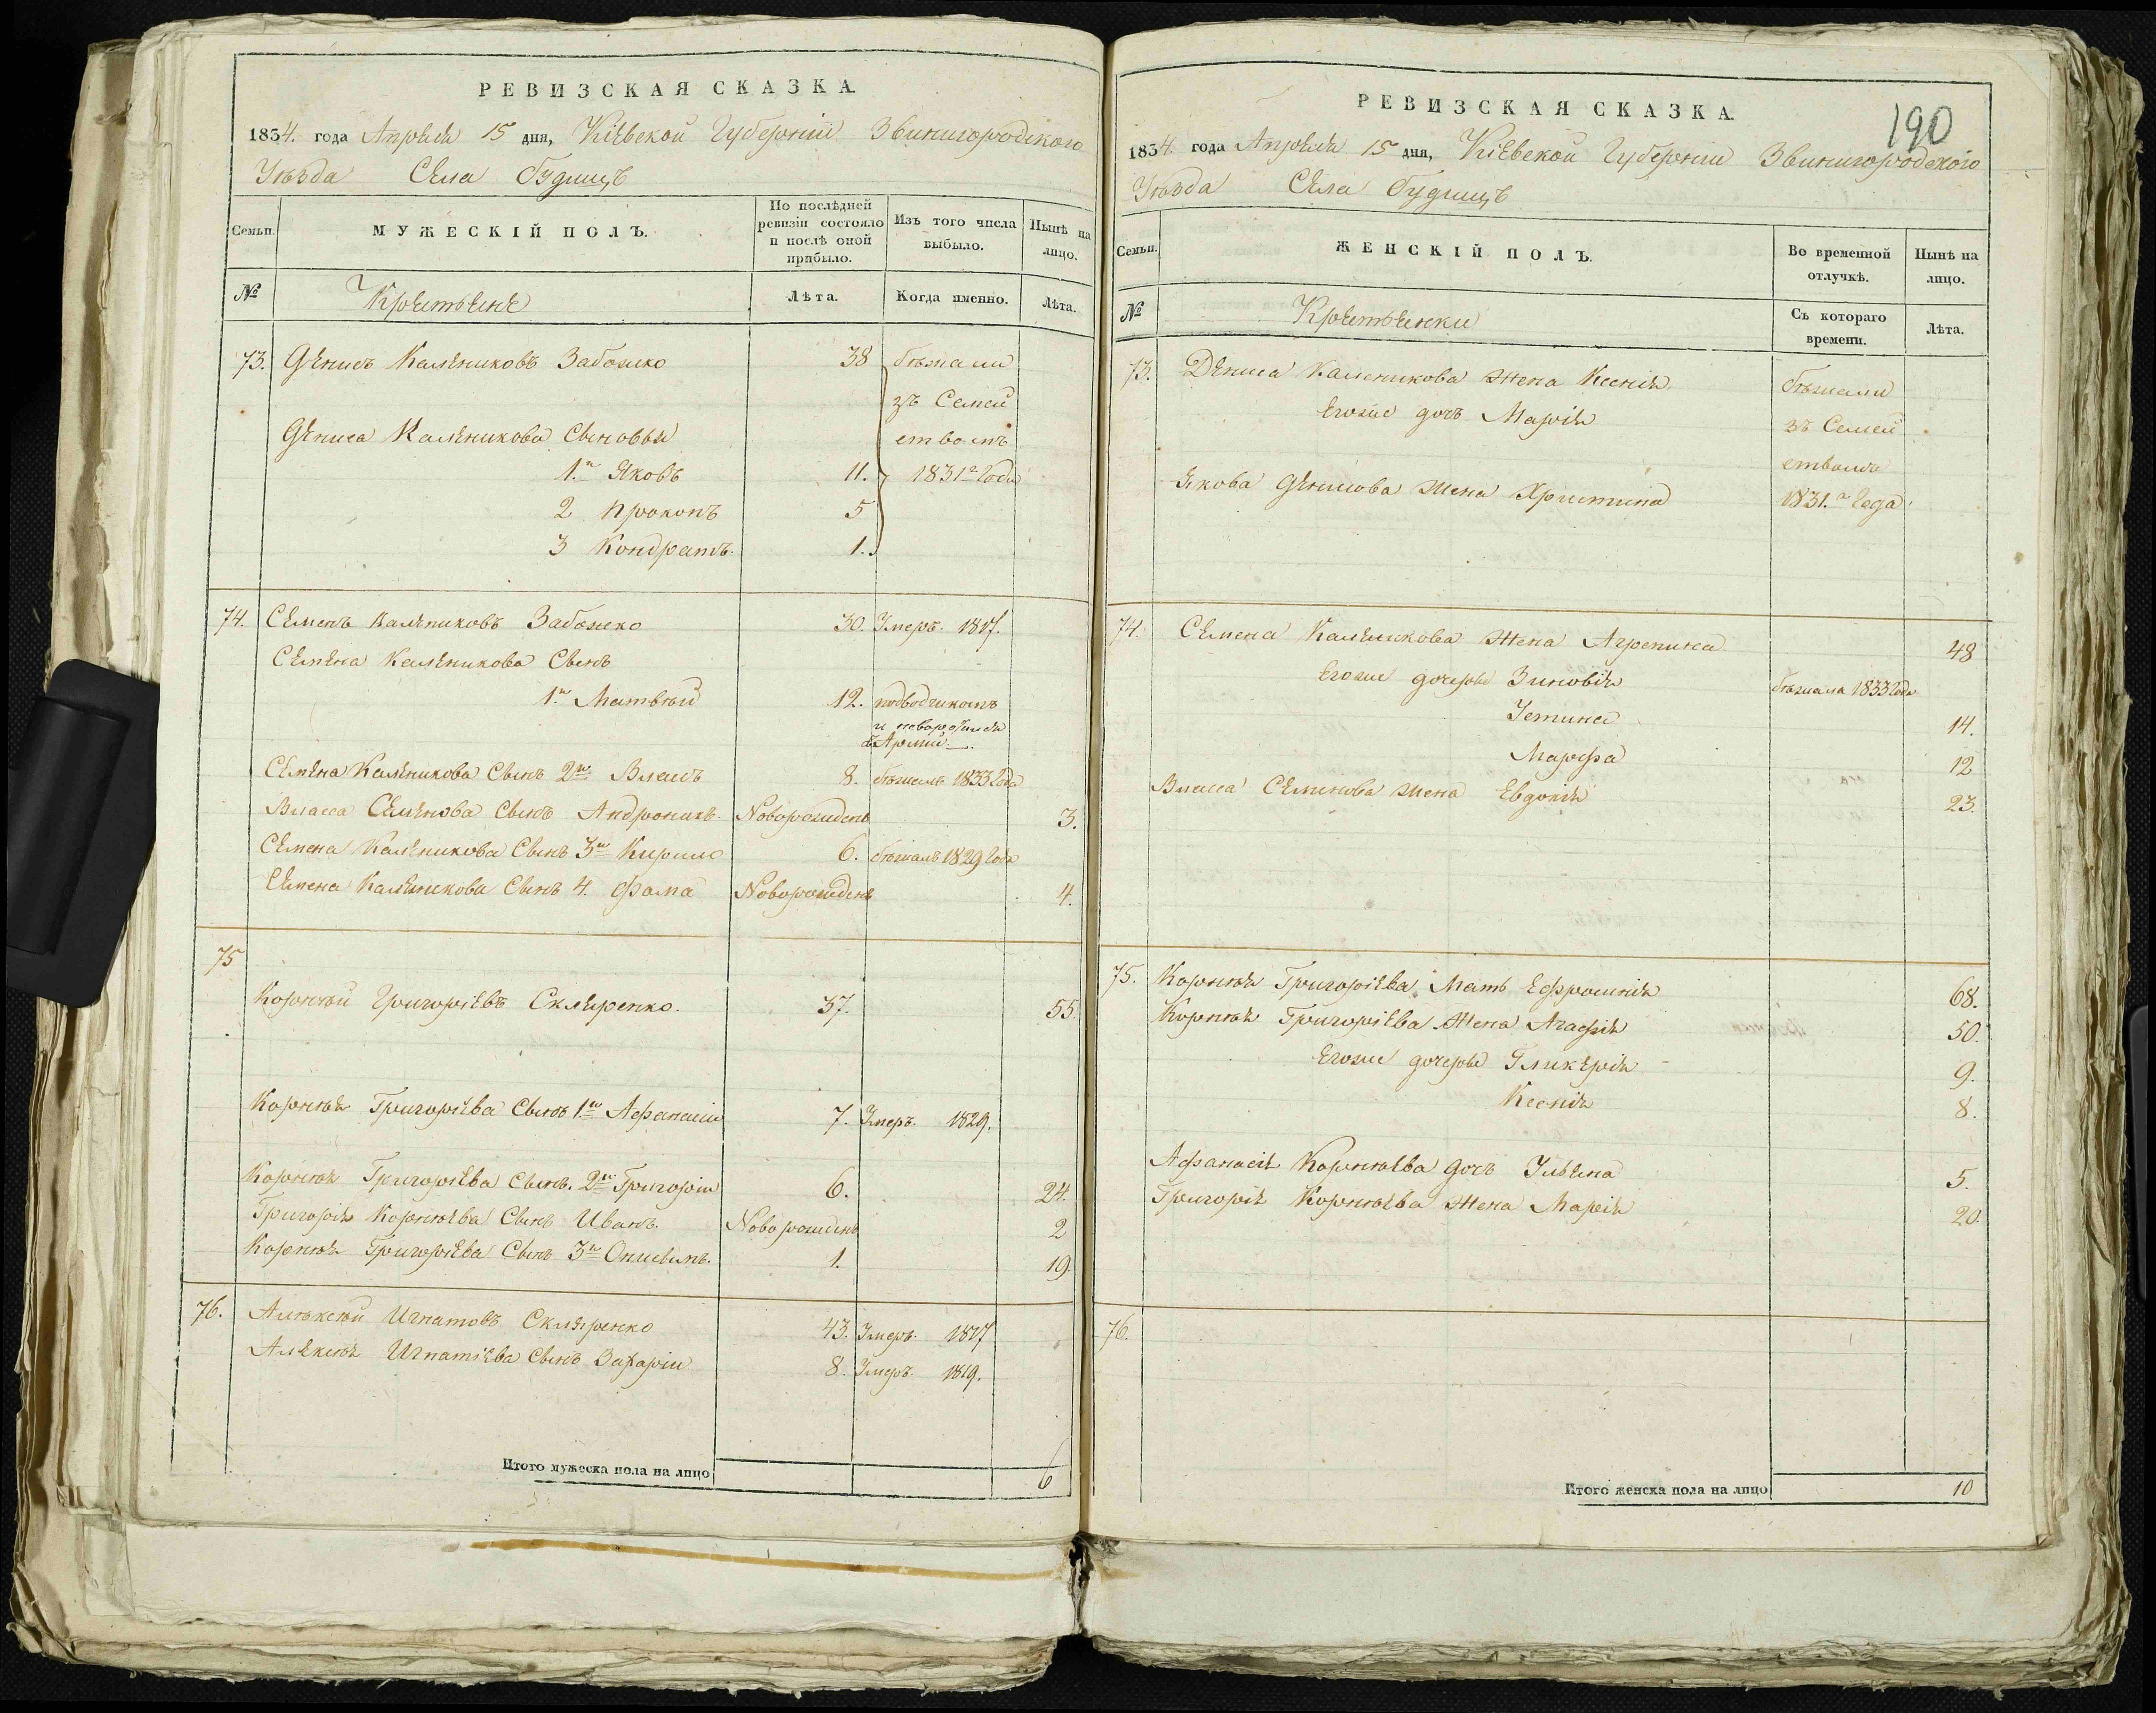 РЕВИЗСКАЯ СКАЗКА
1834. года Апреля 15 дня, Кіевской Губерніи Звинигородского
Уезда Села Будищъ
Семьи.
МУЖЕСКІЙ ПОЛЪ.
По послѣдней ревизіи состояло и послѣ оной прибыло.
Изъ того числа выбыло.
Нынѣ на лицо.
№
Крестьене
Лѣта.
Когда именно.
Лѣта.
73. Денисъ Калениковъ Забошко 38 бежали
зъ Семей
Дениса Каленикова Сыновья ством
1.й Яковъ 11. 1831го Года
2 Прокопъ 5
3 Кондратъ. 1.
74. Семенъ Калениковъ Забошко 30. Умеръ. 1817.
Семена Каленикова Сынъ
1.й Матвѣй 12. подводчикомъ
и невороти́лся
Арміи
Семена Каленикова Сынъ 2й Власъ 8. бежалъ 1833 Года
Власа Семенова Сынъ Андроникъ. Новорожденъ 3.
Семена Каленикова Сынъ 3й Кирило 6. бежалъ 1829 Года
Семена Каленикова Сынъ 4. Фома Новорожденъ 4.
75
Корней Григоріевъ Скляренко. 37. 55.
Корнея Григоріева Сынъ 1й Афанасій 7. Умеръ. 1829.
Корнея Григоріева Сынъ. 2й Григорій 6. 24.
Григорія Корнеева Сынъ Иванъ. Новорожденъ 2
Корнея Григоріева Сынъ 3й 1. 19.
76. Алексей Игнатовъ Скляренко 43. Умеръ. 1817
Алексея Игнатіева Сынъ Захарій 8. Умеръ. 1819.
Итого мужеска пола на лицо 6
РЕВИЗСКАЯ СКАЗКА.
190
1834. года Апреля 15 дня, Кіевской Губерніи Звинигородского
Уезда Села Будищъ
Семьи.
ЖЕНСКІЙ ПОЛЪ.
Во временной отлучкѣ.
Нынѣ на лицо.
№
Крестьенки
Съ котораго времени.
Лѣта.
73. Дениса Каленикова жена Ксенія бежали
Егоже дочъ Марія зъ Семей
ством
Якова Денисова жена Христина 1831.го Года
74. Семена Каленикова жена Агрепина 48
Егоже дочеры Зиновія бежала 1833 Года
Устина 14.
Марфа 12
Власа Семенова жена Евдокія 23.
75. Корнея Григоріева Мать Ефросинія 68.
Корнея Григоріева жена Агафія 50.
Егоже дочеры Гликерія 9.
Ксенія 8.
Афанасія Корнеева дочъ Ульена 5.
Григорія Корнеева жена Марія 20.
76.
Итого женска пола на лицо 10